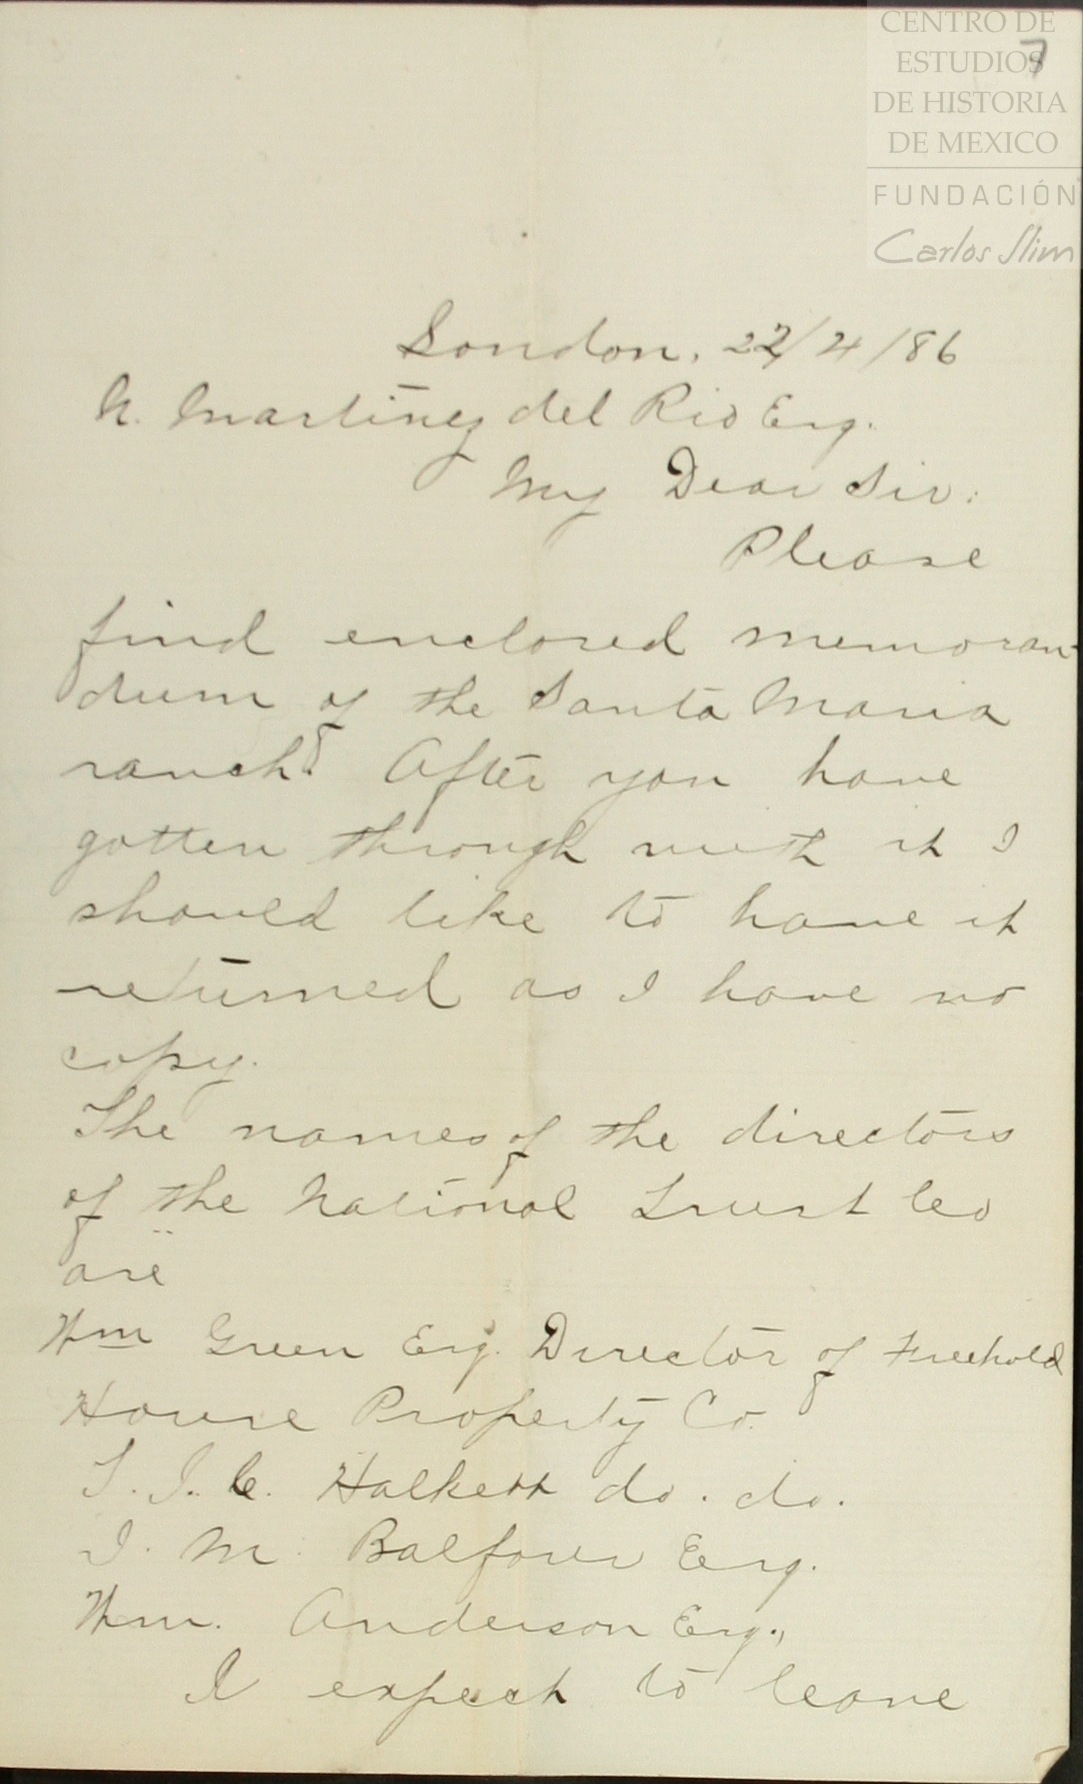 CENTRO DE
ESTUDIOS
DE HISTORIA
DE MEXICO
FUNDACIÓN
Carlos Slim
7
London, 22/4/86
N. Martinez del Rio Esq.
My Dear Sir:
Please
find enclosed memoran-
dum of the Santa Maria
ranch. After you have
gotten through with it I
should like to have it
returned as I have no
copy.
The names of the directors
of the National Trust Co
are
Wm Green Esq. Director of Freehold
House Property Co.
T. J. C. Halkett do. do.
J. M. Balfour Esq.
Wm. Anderson Esq.,
I expect to leave